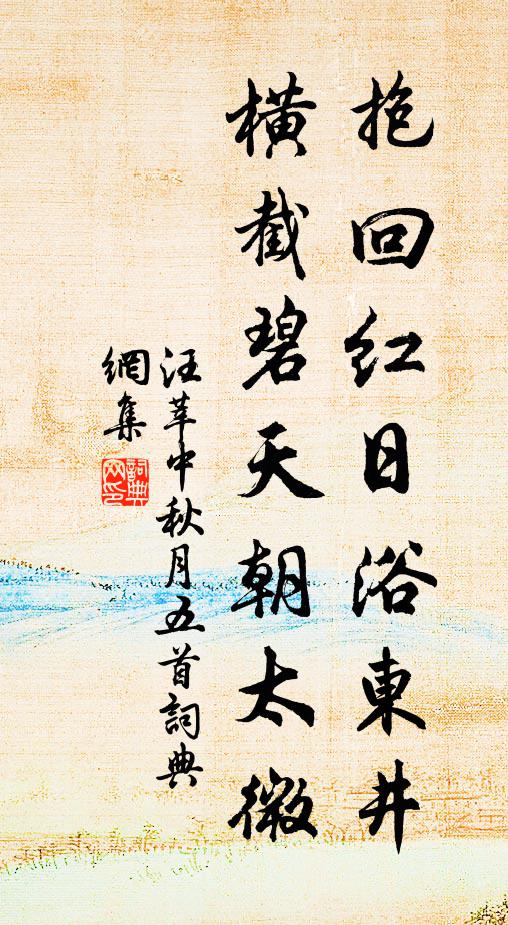 抱回紅日浴東井
橫截碧天朝太微
汪莘中秋月五首詞典
網集
詞典
网印